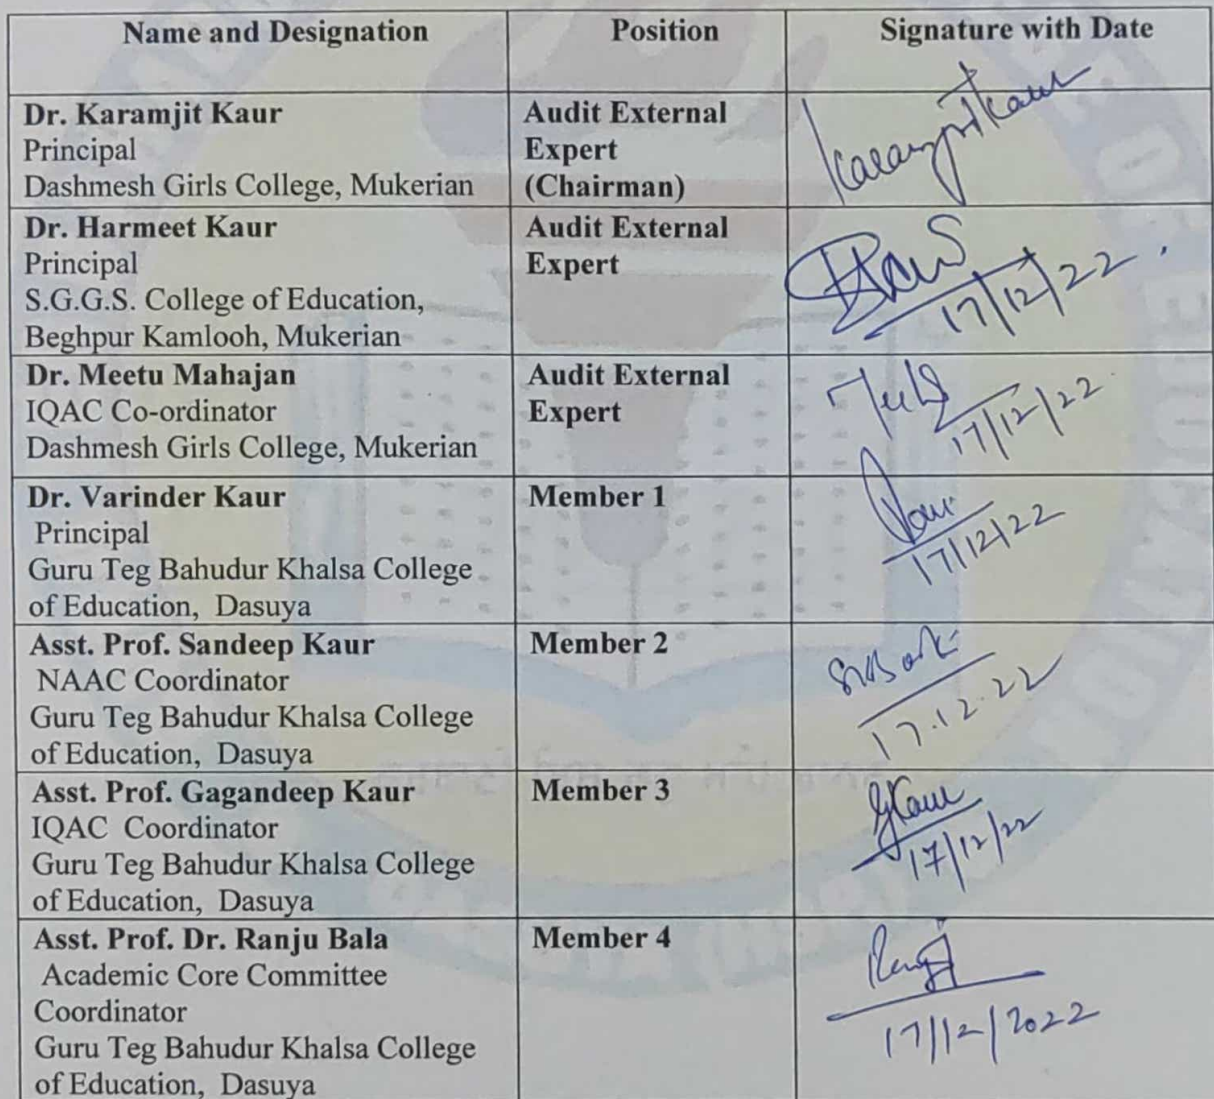 Name and Designation Position Signature with Date
Dr. Karamjit Kaur
Principal
Dashmesh Girls College, Mukerian
Audit External
Expert
(Chairman)
Karamjit Kaur
Dr. Harmeet Kaur
Principal
S.G.G.S. College of Education,
Beghpur Kamlooh, Mukerian
Audit External
Expert
17/12/22
Dr. Meetu Mahajan
IQAC Co-ordinator
Dashmesh Girls College, Mukerian
Audit External
Expert
17/12/22
Dr. Varinder Kaur
Principal
Guru Teg Bahudur Khalsa College
of Education, Dasuya
Member 1
17/12/22
Asst. Prof. Sandeep Kaur
NAAC Coordinator
Guru Teg Bahudur Khalsa College
of Education, Dasuya
Member 2
17.12.22
Asst. Prof. Gagandeep Kaur
IQAC Coordinator
Guru Teg Bahudur Khalsa College
of Education, Dasuya
Member 3
GKaur
17/12/22
Asst. Prof. Dr. Ranju Bala
Academic Core Committee
Coordinator
Guru Teg Bahudur Khalsa College
of Education, Dasuya
Member 4
17/12/2022